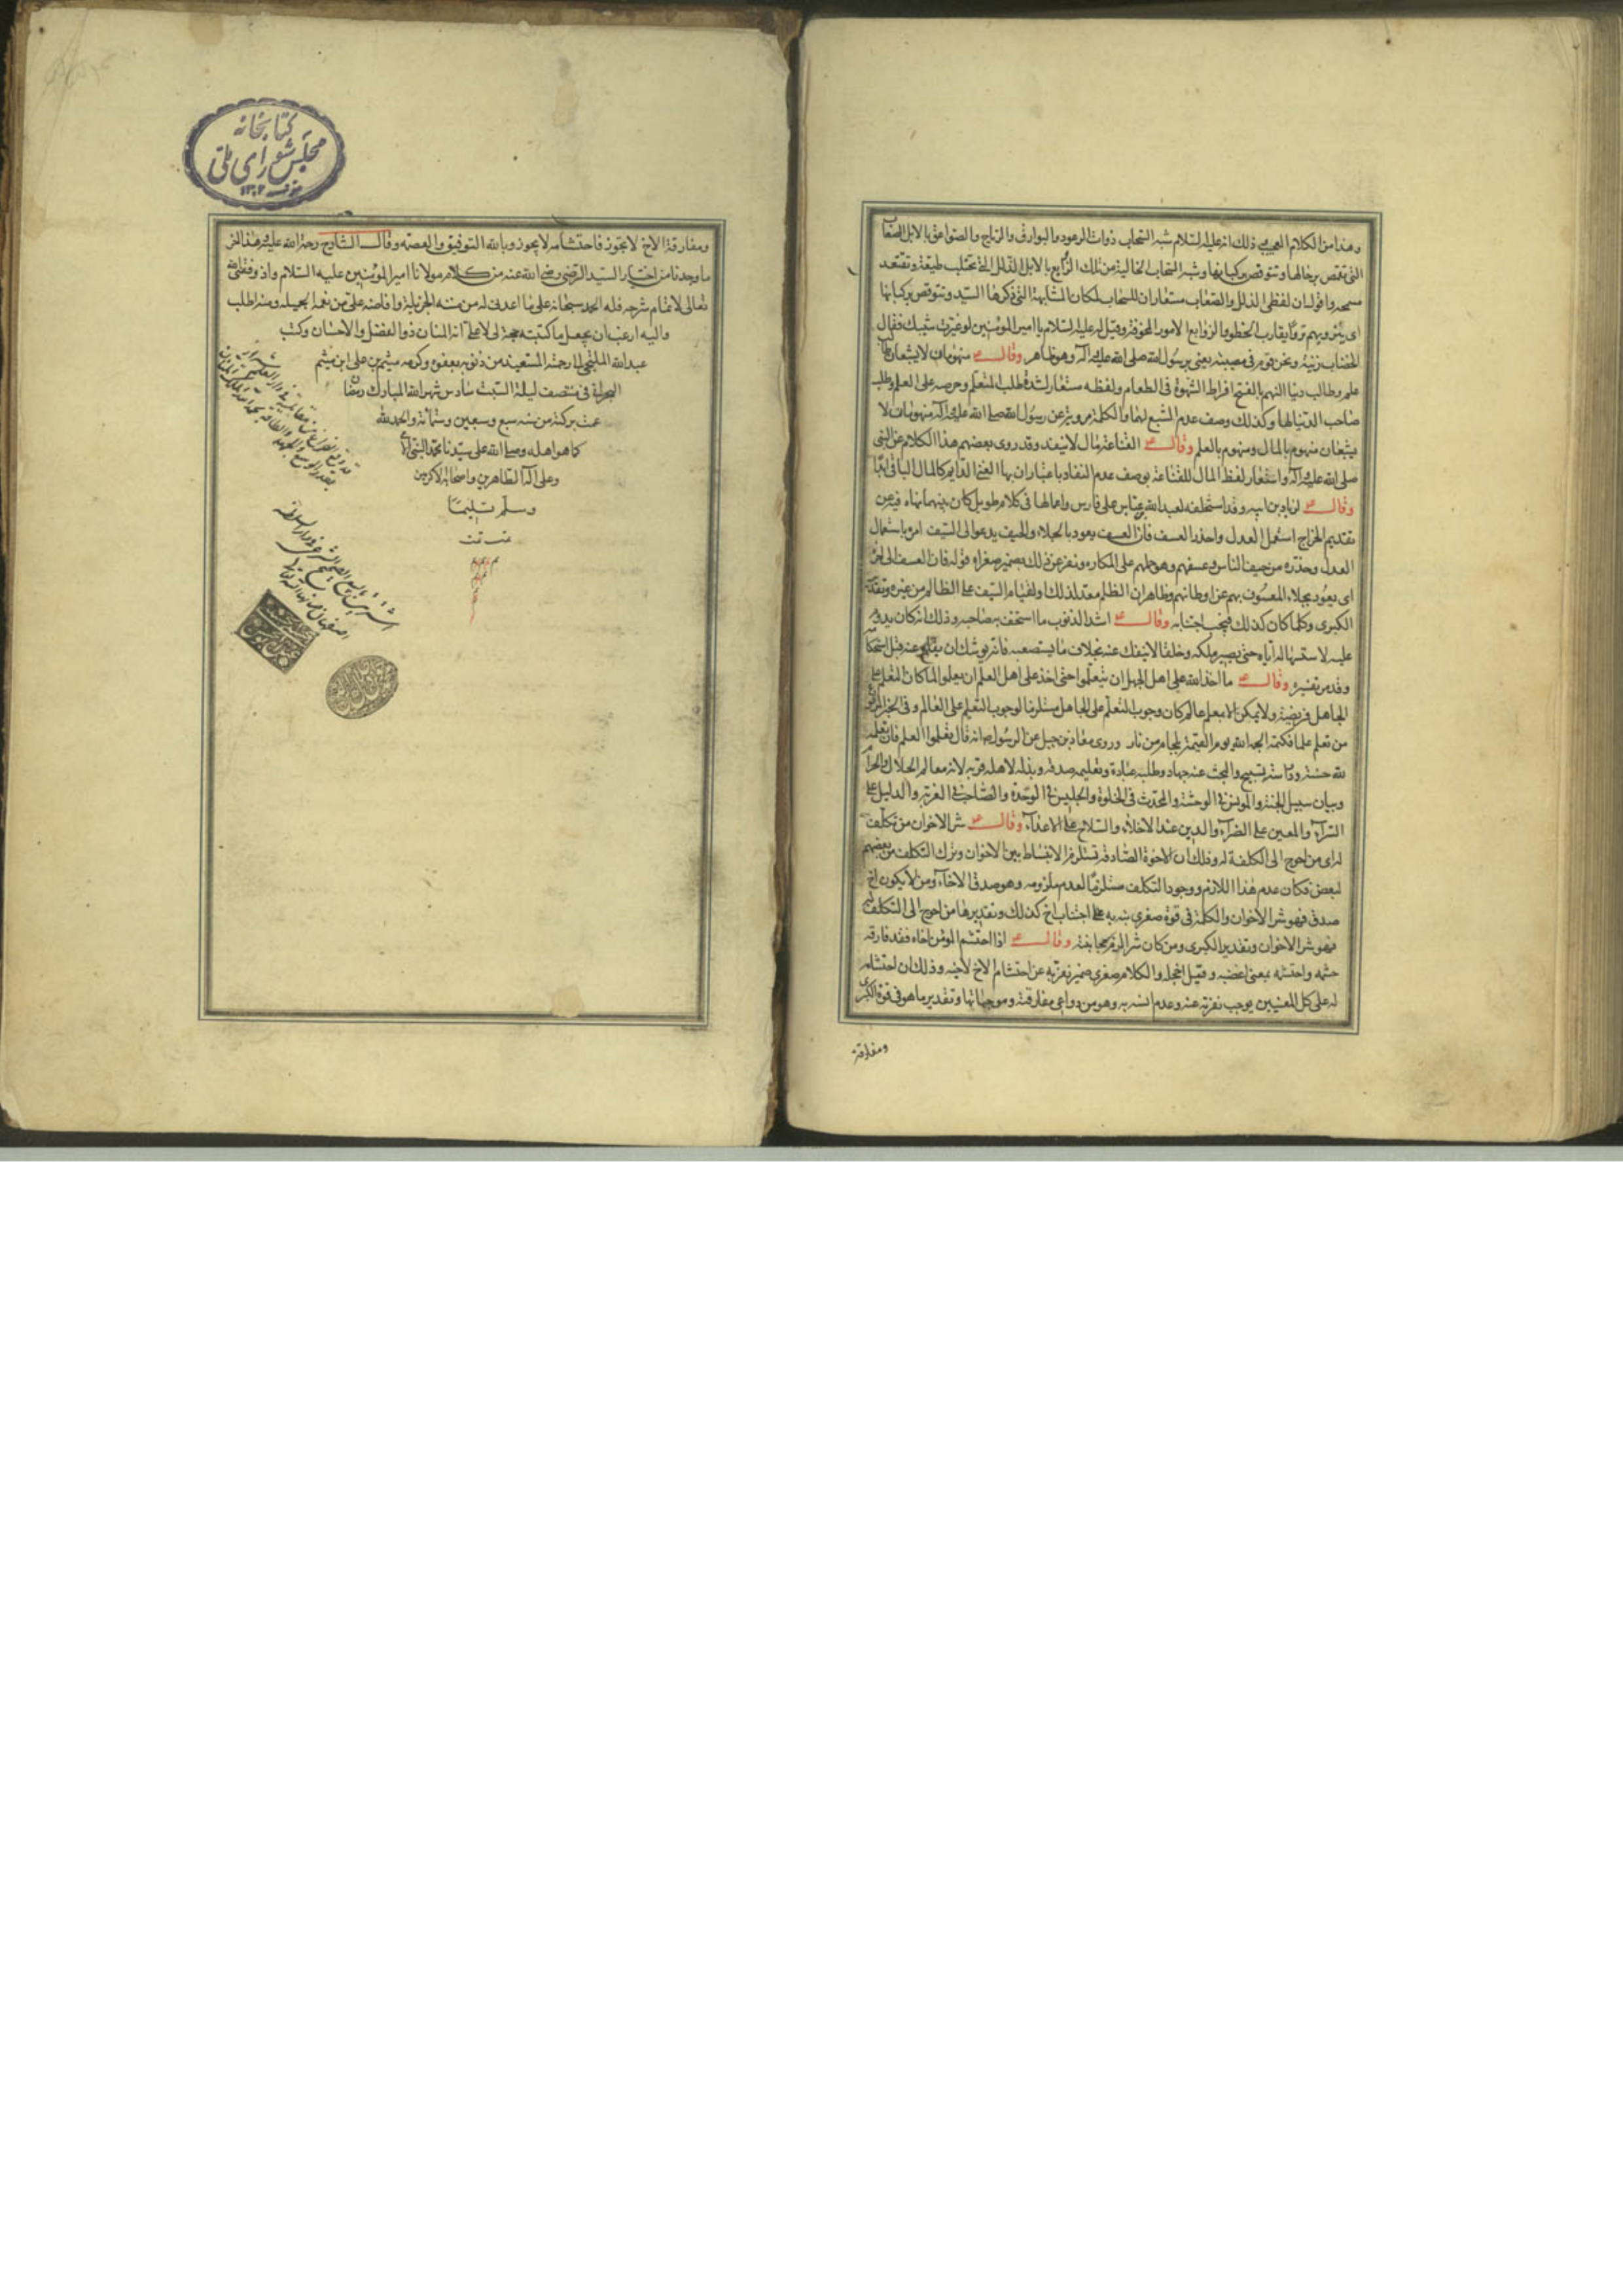 وهذا من الكلام العجيب وذلك انه عليه السلام شبه السحاب ذوات الرعود والبوارق والرياح والصواعق بالابل الصعاب
التى تقمص برحالها وتتوقص بركبانها وشبه السحاب الخالية من تلك الروايع بالابل الذلل التى تحتلب طيعة وتقتعد
مسمحة واقول ان لفظى الذلل والصعاب مستعاران للسحاب لمكان المشابهة التى ذكرها السيد وتتوقص بركبانها
اى وقيل له عليه السلام يا امير المؤمنين لو غيرت شيبك فقال
الخضاب زينة ونحن قوم فى مصيبة يعنى برسول الله صلى الله عليه وآله وهو ظاهر وقال ع منهومان لا يشبعان طالب
علم وطالب دنيا النهم بالفتح افراط الشهوة فى الطعام ولفظه مستعار لشدة طلب المتعلم وحرصه على العلم وطلب
صاحب الدنيا لها وكذلك وصف عدم الشبع لهما والكلمة مروية عن رسول الله صلى الله عليه وآله منهومان لا
يشبعان منهوم بالمال ومنهوم بالعلم وقال ع القناعة مال لا ينفد وقد روى بعضهم هذا الكلام عن النبى
صلى الله عليه وآله واستعار لفظ المال للقناعة بوصف عدم النفاد باعتبار ان بها الغنى الدايم كالمال الباقى ابدا
وقال ع لزياد بن ابيه وقد استخلفه لعبد الله بن عباس على فارس واعمالها فى كلام طويل كان بينهما نهاه فيه عن
تقديم الخراج استعمل العدل واحذر العسف فان العسف يعود بالجلاء والحيف يدعو الى السيف امره باستعمال
العدل وحذره من حيف الناس وعسفهم وهو حملهم على المكاره ونفر عن ذلك بضمير صغراه قوله فان العسف الى اخره
اى يعود بجلاء المعسوف بهم عن اوطانهم وظاهر ان الظلم معد لذلك ولقيام السيف على الظالم من غيره وتقدير
الكبرى وكلما كان كذلك فيجب اجتنابه وقال ع اشد الذنوب ما استخف به صاحبه وذلك انه كان يدوم
عليه لاستسهاله اياه حتى يصير ملكة وخلقا لا ينفك عنه بخلاف ما يستصعبه فانه يوشك ان يقلع عنه قبل استحكامه
وقد مر تفسيره وقال ع ما اخذ الله على اهل الجهل ان يتعلموا حتى اخذ على اهل العلم ان يعلموا لما كان التعلم على
الجاهل فريضة ولا يمكن الا بمعلم عالم كان وجوب التعلم على الجاهل مستلزما لوجوب التعليم على العالم وفى الخبر المرفوع
من تعلم علما فكتمه الجمه الله يوم القيمة بلجام من نار وروى معاذ بن جبل عن الرسول ص انه قال تعلموا العلم فان تعلمه
لله حسنة ومدارسته تسبيح والبحث عنه جهاد وطلبه عبادة وتعليمه صدقة وبذله لاهله قربة لانه معالم الحلال والحرام
وبيان سبيل الجنة والمونس فى الوحشة والمحدث فى الخلوة والجليس فى الوحدة والصاحب فى الغربة والدليل على
السراء والمعين على الضراء والدين عند الاخلاء والسلاح على الاعداء وقال ع شر الاخوان من تكلف
له اى من احوج الى الكلفة له وذلك ان الاخوة الصادقة تستلزم الانبساط بين الاخوان وترك التكلف من بعضهم
لبعض فكان عدم هذا اللازم ووجود التكلف مستلزما لعدم ملزومه وهو صدق الاخاء ومن لا يكون اخ
صدق فهو شر الاخوان والكلمة فى قوة صغرى نبه به على اجتناب اخ كذلك وتقديرها من احوج الى التكلف له
فهو شر الاخوان وتقدير الكبرى ومن كان شرالزم مجانبته وقال ع اذا احتشم المؤمن اخاه فقد فارقه
حشمه واحتشمه بمعنى اغضبه وقيل اخجله والكلام صغرى ضمير نفر به عن احتشام الاخ لاخيه وذلك ان احتشامه
له على كل المعنيين يوجب نفرته عنه وعدم انسه به وهو من دواعى مفارقته وموجباتها وتقدير ما هو فى قوة الكبرى
ومفارقة
كتابخانه
مجلس شوراى ملى
ومفارقة الاخ لا تجوز فاحتشامه لا يجوز وبالله التوفيق والعصمة وقال الشارح رحمة الله عليه هذا آخر
ما وجدنا من اختيار السيد الرضى رضى الله عنه من كلام مولانا امير المؤمنين عليه السلام واذ وفقنى الله
تعالى لاتمام شرحه فله الحمد سبحانه على ما اعدنى له من مننه الجزيلة وافاضه على من نعمه الجميله ومنه اطلب
واليه ارغب ان يجعل ما كتبته حجة لى لا على انه المنان ذو الفضل والاحسان وكتب
عبد الله الملتجى الى رحمته المستعيذ من ذنوبه بعفوه وكرمه ميثم بن على ابن ميثم
البحرانى فى منتصف ليلة السبت سادس شهر الله المبارك رمضان
عمت بركته من سنه سبع وسبعين وستمائة والحمد لله
كما هو اهله وصلى الله على سيدنا محمد النبى الامى
وعلى آله الطاهرين واصحابه الاكرمين
وسلم تسليما
تمت تمت